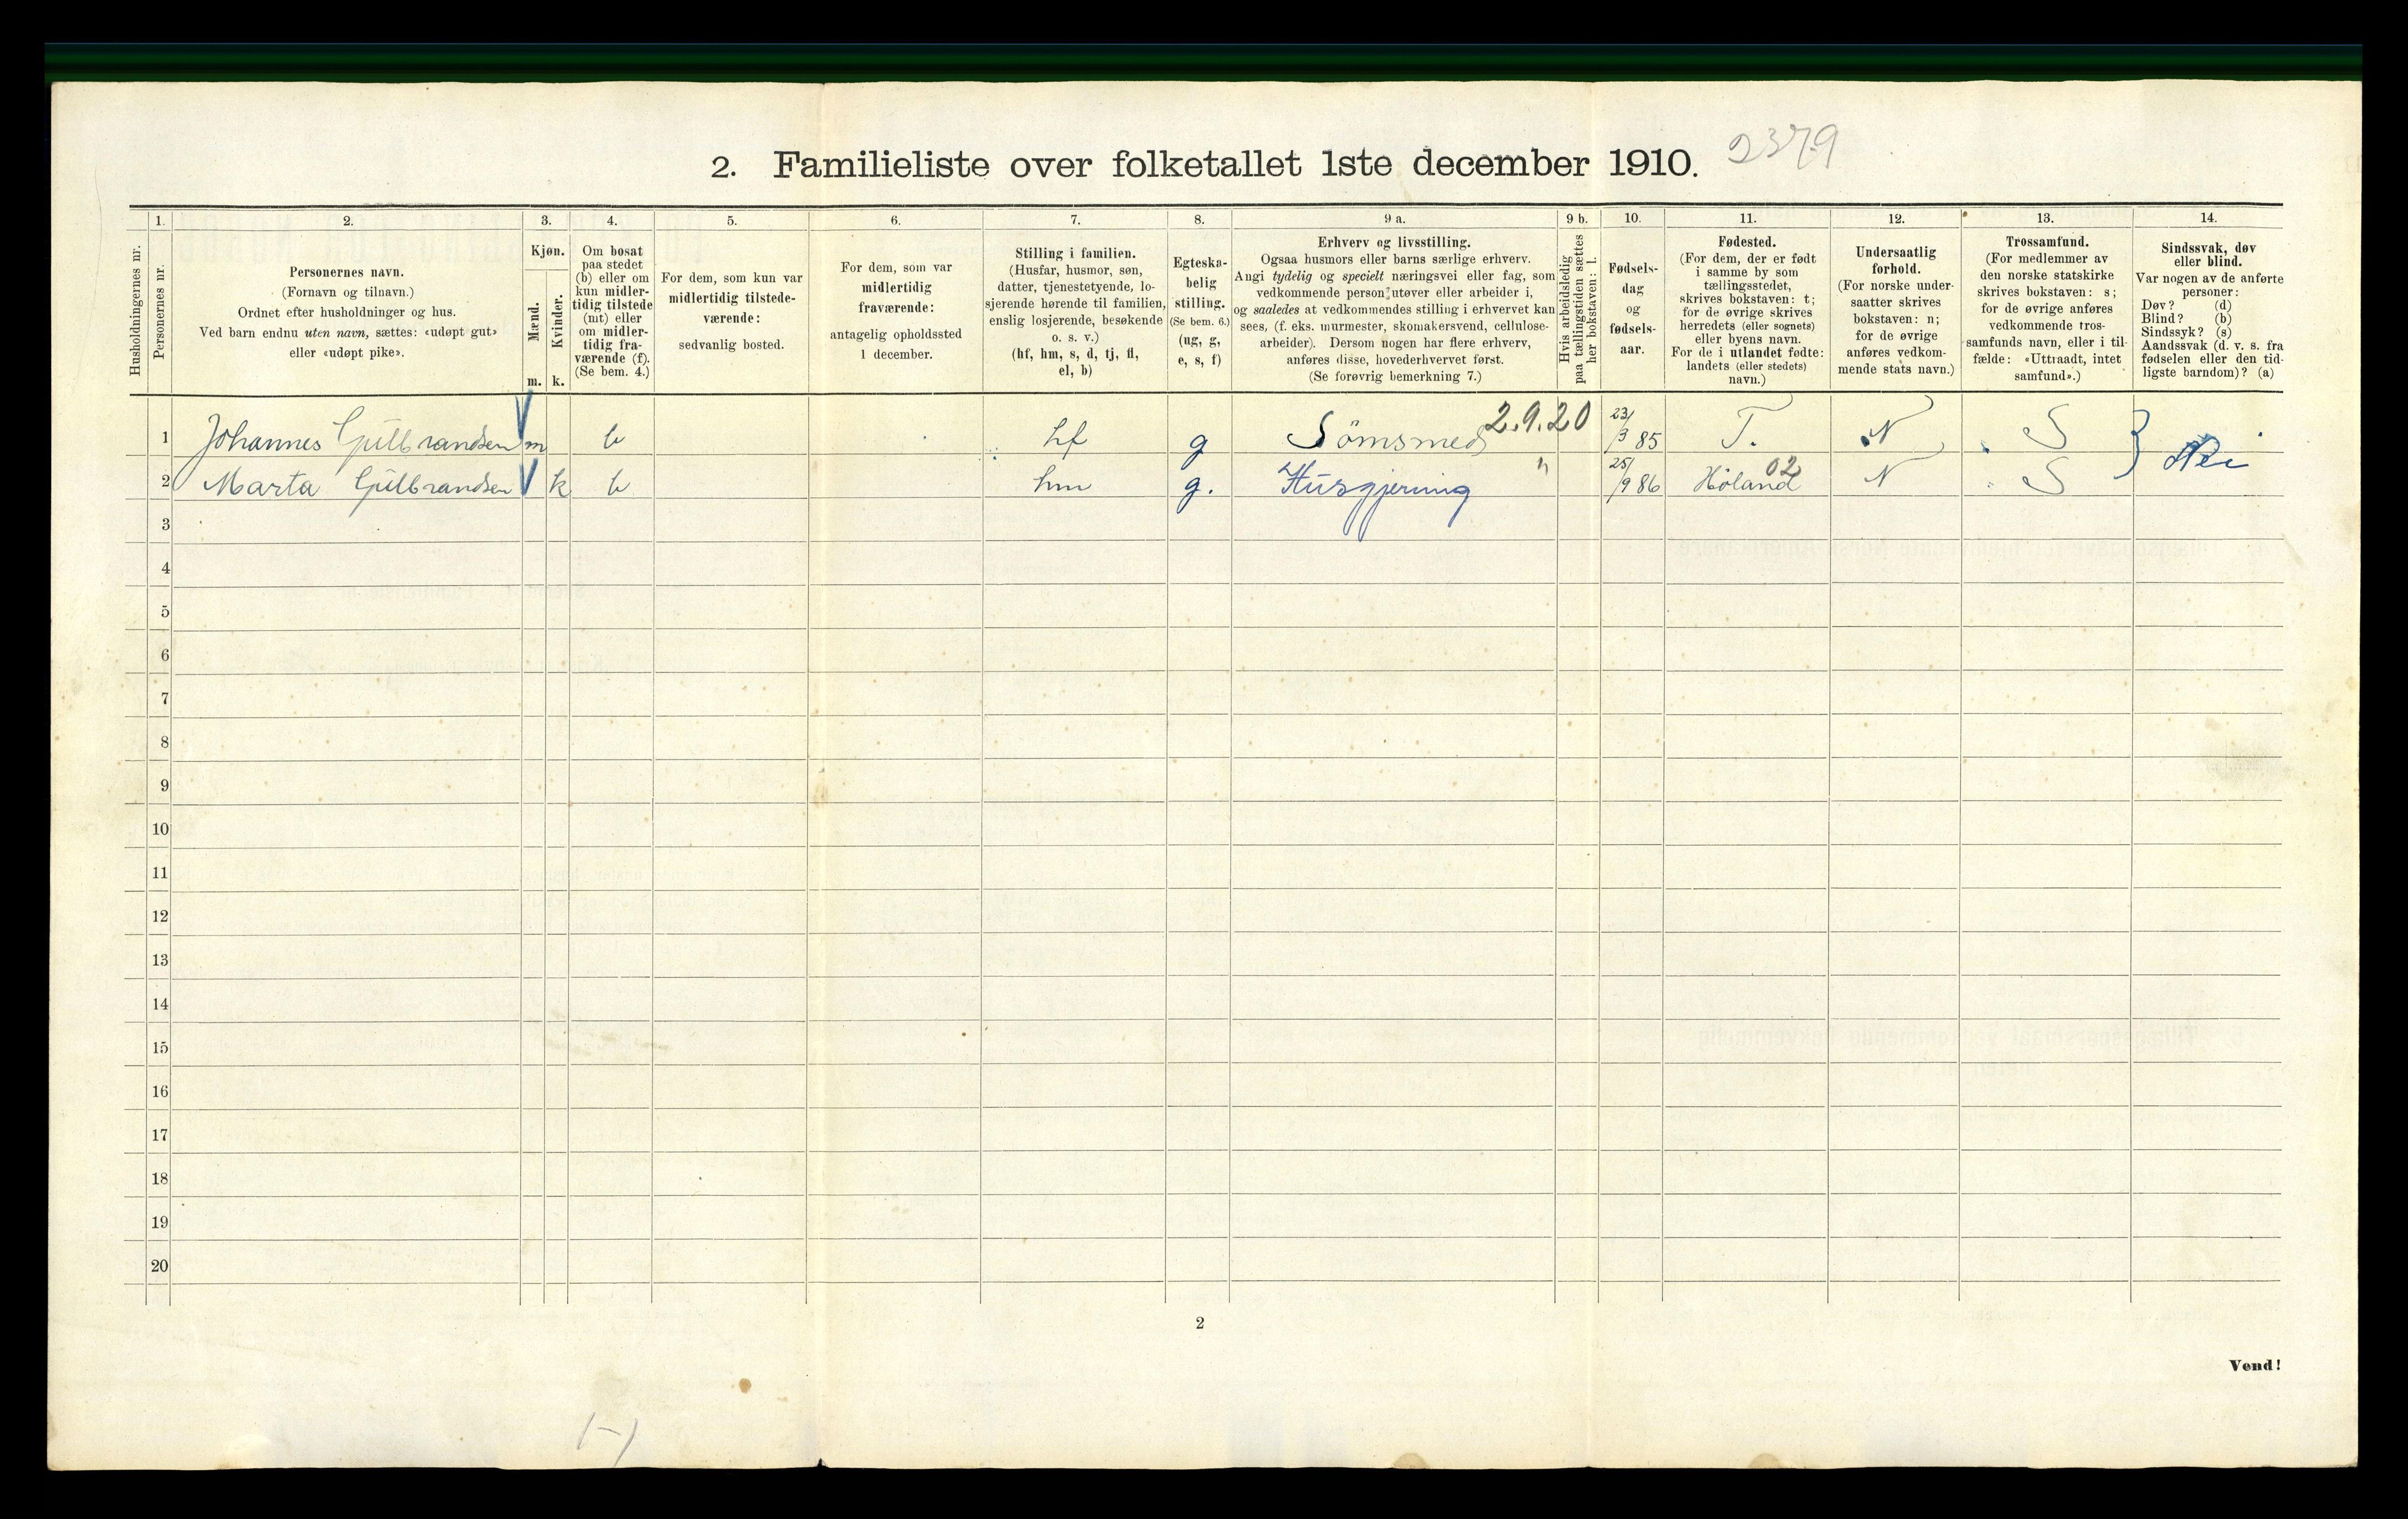 2. Familieliste over folketallet 1ste december 1910. 2379
Husholdningernes nr.
1.
Personernes nr.
2.
Personernes navn.
(Fornavn og tilnavn.)
Ordnet efter husholdninger og hus.
Ved barn endnu uten navn, sættes: «udøpt gut»
eller «udøpt pike».
3.
Kjøn.
Mænd.
m.
Kvinder.
k.
4.
Om bosat
paa stedet
(b) eller om
kun midler-
tidig tilstede
(mt) eller
om midler-
tidig fra-
værende (f).
(Se bem. 4.)
5.
For dem, som kun var
midlertidig tilstede-
værende:
sedvanlig bosted.
6.
For dem, som var
midlertidig
fraværende:
antagelig opholdssted
1 december.
7.
Stilling i familien.
(Husfar, husmor, søn,
datter, tjenestetyende, lo-
sjerende hørende til familien,
enslig losjerende, besøkende
o. s. v.)
(hf, hm, s, d, tj, fl,
el, b)
8.
Egteska-
belig
stilling.
(Se bem. 6.)
(ug, g,
e, s, f)
9 a.
Erhverv og livsstilling.
Ogsaa husmors eller barns særlige erhverv.
Angi tydelig og specielt næringsvei eller fag, som
vedkommende person utøver eller arbeider i,
og saaledes at vedkommendes stilling i erhvervet kan
sees, (f. eks. murmester, skomakersvend, cellulose-
arbeider). Dersom nogen har flere erhverv,
anføres disse, hovederhvervet først.
(Se forøvrig bemerkning 7.)
9 b.
Hvis arbeidsledig
paa tællingstiden sættes
her bokstaven: l.
10.
Fødsels-
dag
og
fødsels-
aar.
11.
Fødested.
(For dem, der er født
i samme by som
tællingsstedet,
skrives bokstaven: t;
for de øvrige skrives
herredets (eller sognets)
eller byens navn.
For de i utlandet fødte:
landets (eller stedets)
navn.)
12.
Undersaatlig
forhold.
(For norske under-
saatter skrives
bokstaven: n;
for de øvrige
anføres vedkom-
mende stats navn.)
13.
Trossamfund.
(For medlemmer av
den norske statskirke
skrives bokstaven: s;
for de øvrige anføres
vedkommende tros-
samfunds navn, eller i til-
fælde: «Uttraadt, intet
samfund».)
14.
Sindssvak, døv
eller blind.
Var nogen av de anførte
personer:
Døv? (d)
Blind? (b)
Sindssyk? (s)
Aandssvak (d. v. s. fra
fødselen eller den tid-
ligste barndom)? (a)
1 Johannes Gulbrandsen m b hf g Sömsmed 2.9.20 23/3 85 T. N S Nei
2 Marta Gulbrandsen k b hm g. Husgjerning " 25/9 86 Höland 02 N S
3
4
5
6
7
8
9
10
11
12
13
14
15
16
17
18
19
20
2
Vend!
1-1